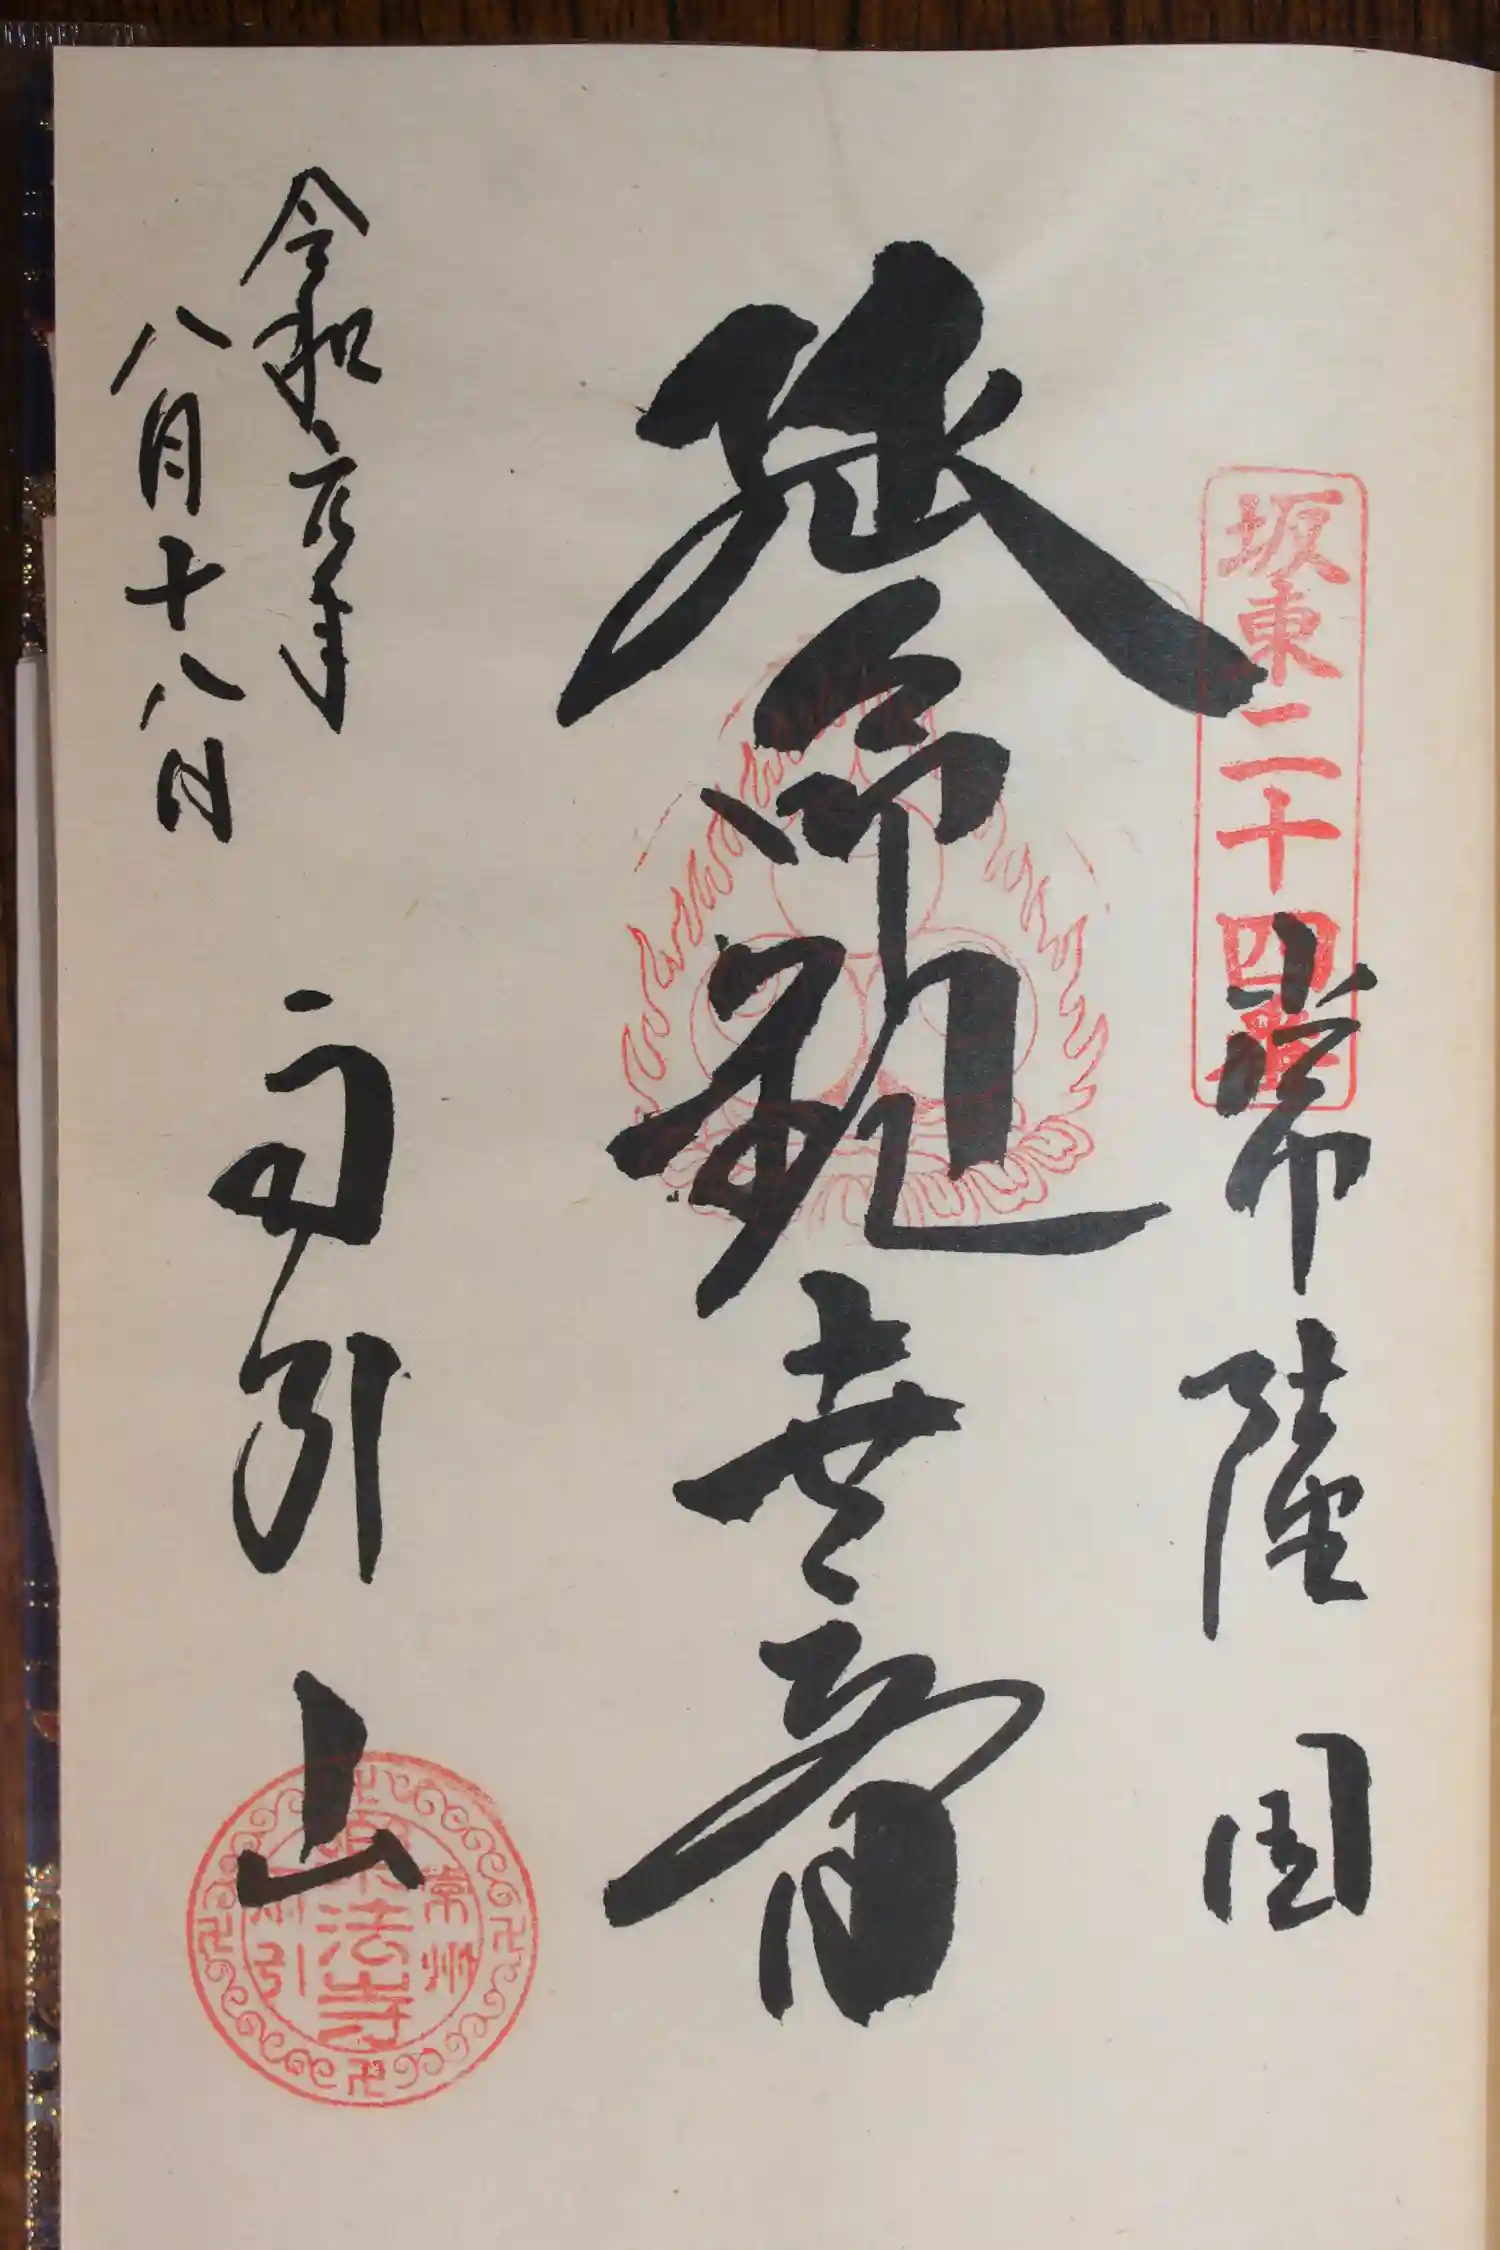 坂東二十四番
常陸国
延命観世音
雨引山
令和元年
八月十八日
常州
楽法寺
雨引